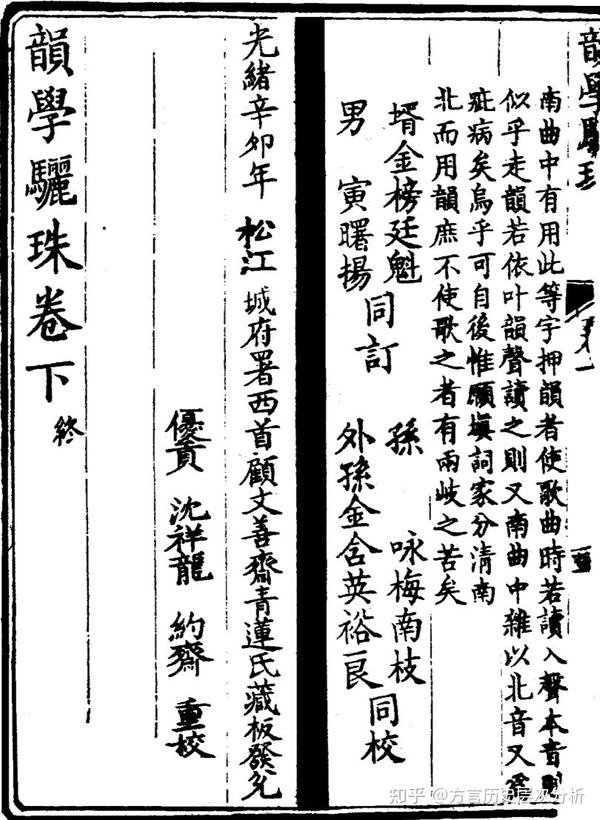 韻學驪珠
南曲中有用此等字押韻者使歌曲時若讀入聲本音則
似乎走韻若依叶韻聲讀之則又南曲中雜以北音又爲
疵病矣烏乎可自後惟願填詞家分清南
北而用韻庶不使歌之者有兩岐之苦矣
壻金榜廷魁
男 寅曙揚
同訂
孫 咏梅南枝
外孫金含英裕良
同校
光緒辛卯年 松江 城府署西首顧文善齋青蓮氏藏板發兌
優貢 沈祥龍 約齋 重校
韻學驪珠卷下 終
知乎 @方言历史层次分析